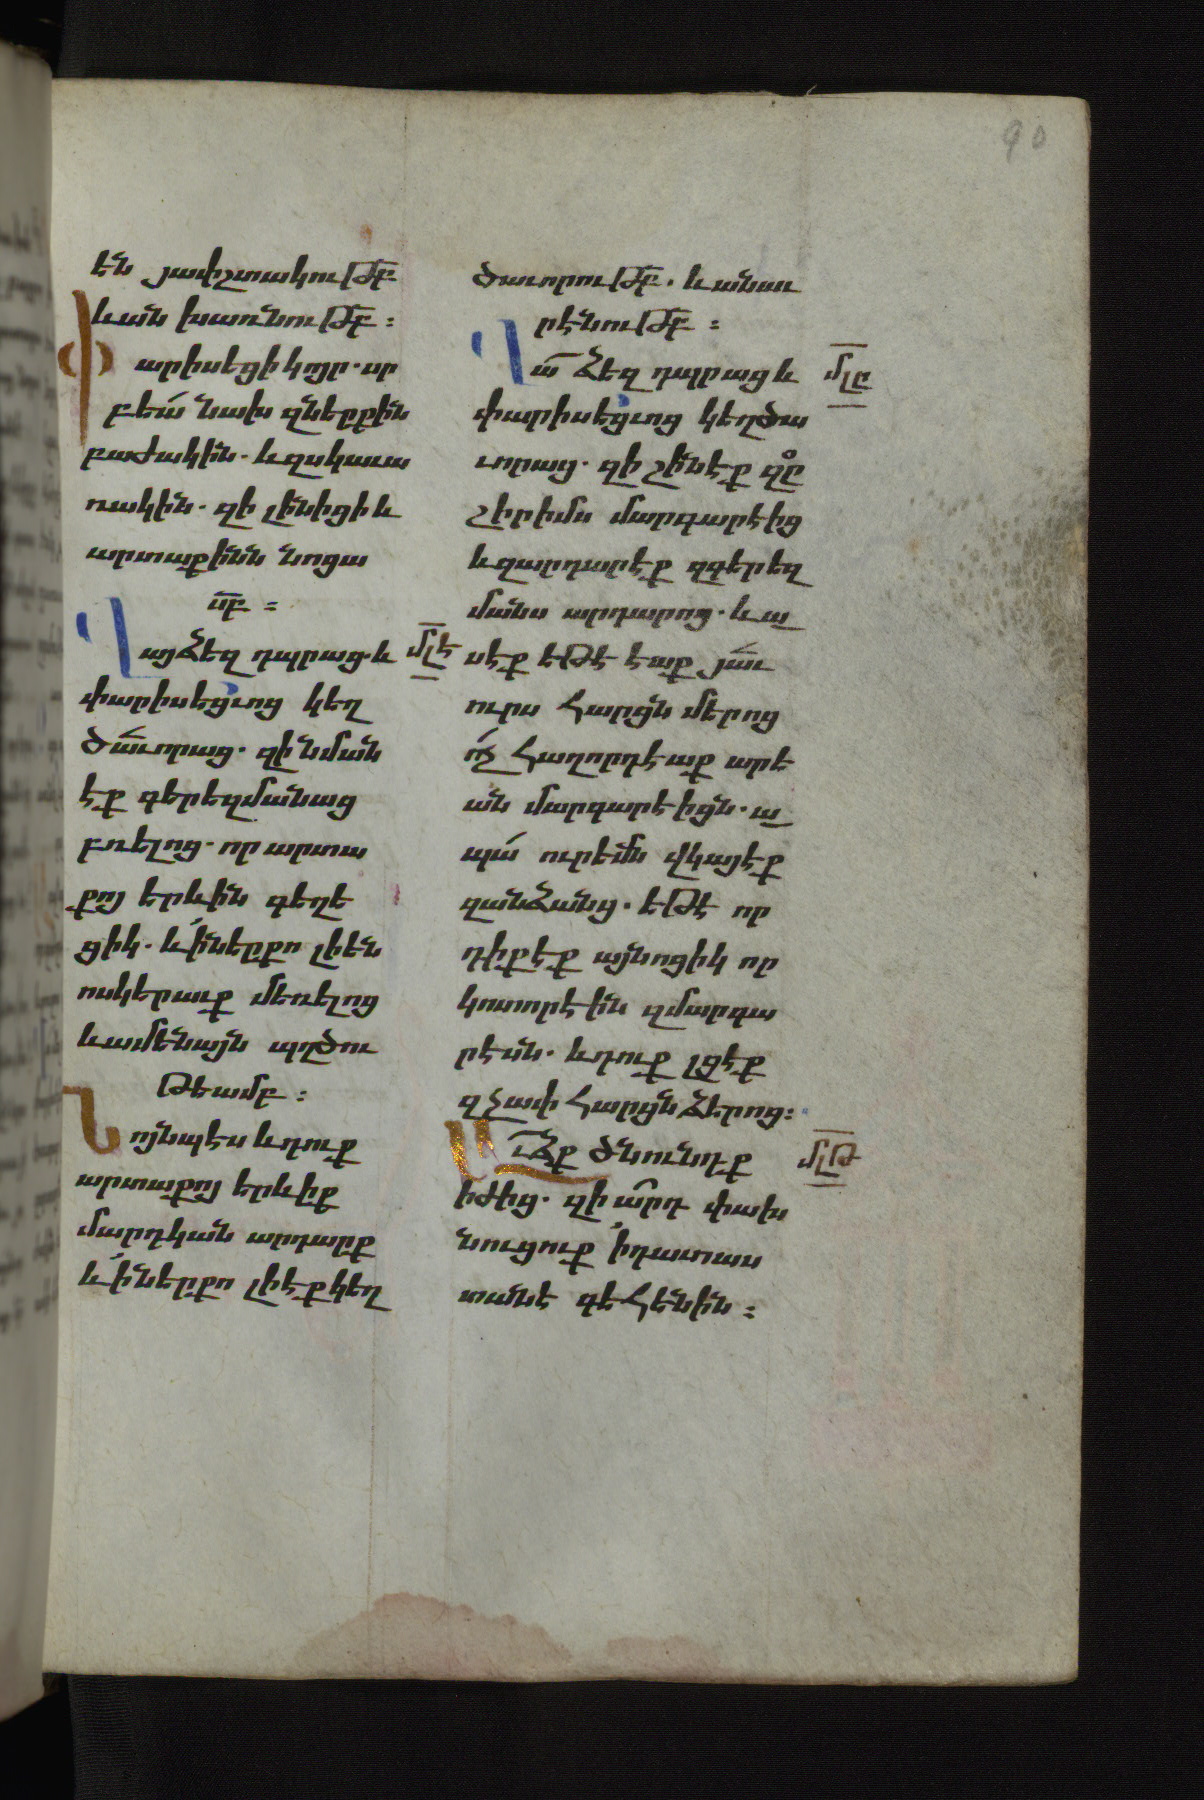 90
էն յափշտակութբ
և ան խառնութբ ։
Փարիսեցի կոյր . սր
բեա՛ նախ զներքին
բաժակին . և զսկաւա
ռակին . զի լինիցի և
արտաքինն նոցա
սբ ։
Վայ ձեզ դպրաց . և մլէ
փարիսեցւոց կեղ
ծաւորաց . զի նման
էք գերեզմանաց
բռելոց . որ արտա
քոյ երևին գեղե
ցիկ . և ի ներքո լիեն
ոսկերաւք մեռելոց
և ամենայն պղծու
թեամբ ։
Նոյնպէս և դուք
արտաքոյ երևիք
մարդկան արդարք
և ի ներքո լի էք կեղ
ծաւորութբ . և անաւ
րէնութբ ։
Վա ձեզ դպրաց և մլը
փարիսեցւոց կեղծա
ւորաց . զի շինէք զը
շիրիմս մարգարէից
և զարդարէք զգերեզ
մանս արդարոց . և ա
սէք եթէ էաք յաւ
ուրս հարցն մերոց
ոչ հաղորդէաք արե
ան մարգարէիցն . ա
պա՛ ուրեմն վկայէք
զանձանց . եթէ որ
դիք էք այնոցիկ որ
կոտորէին զմարգա
րէսն . և դուք լցէք
զչափ հարցն ձերոց ։
Աւձք ծնունդք մլթ
իժից . զի արդ փախ
նուցուք ի դատաս
տանէ գեհենին ։